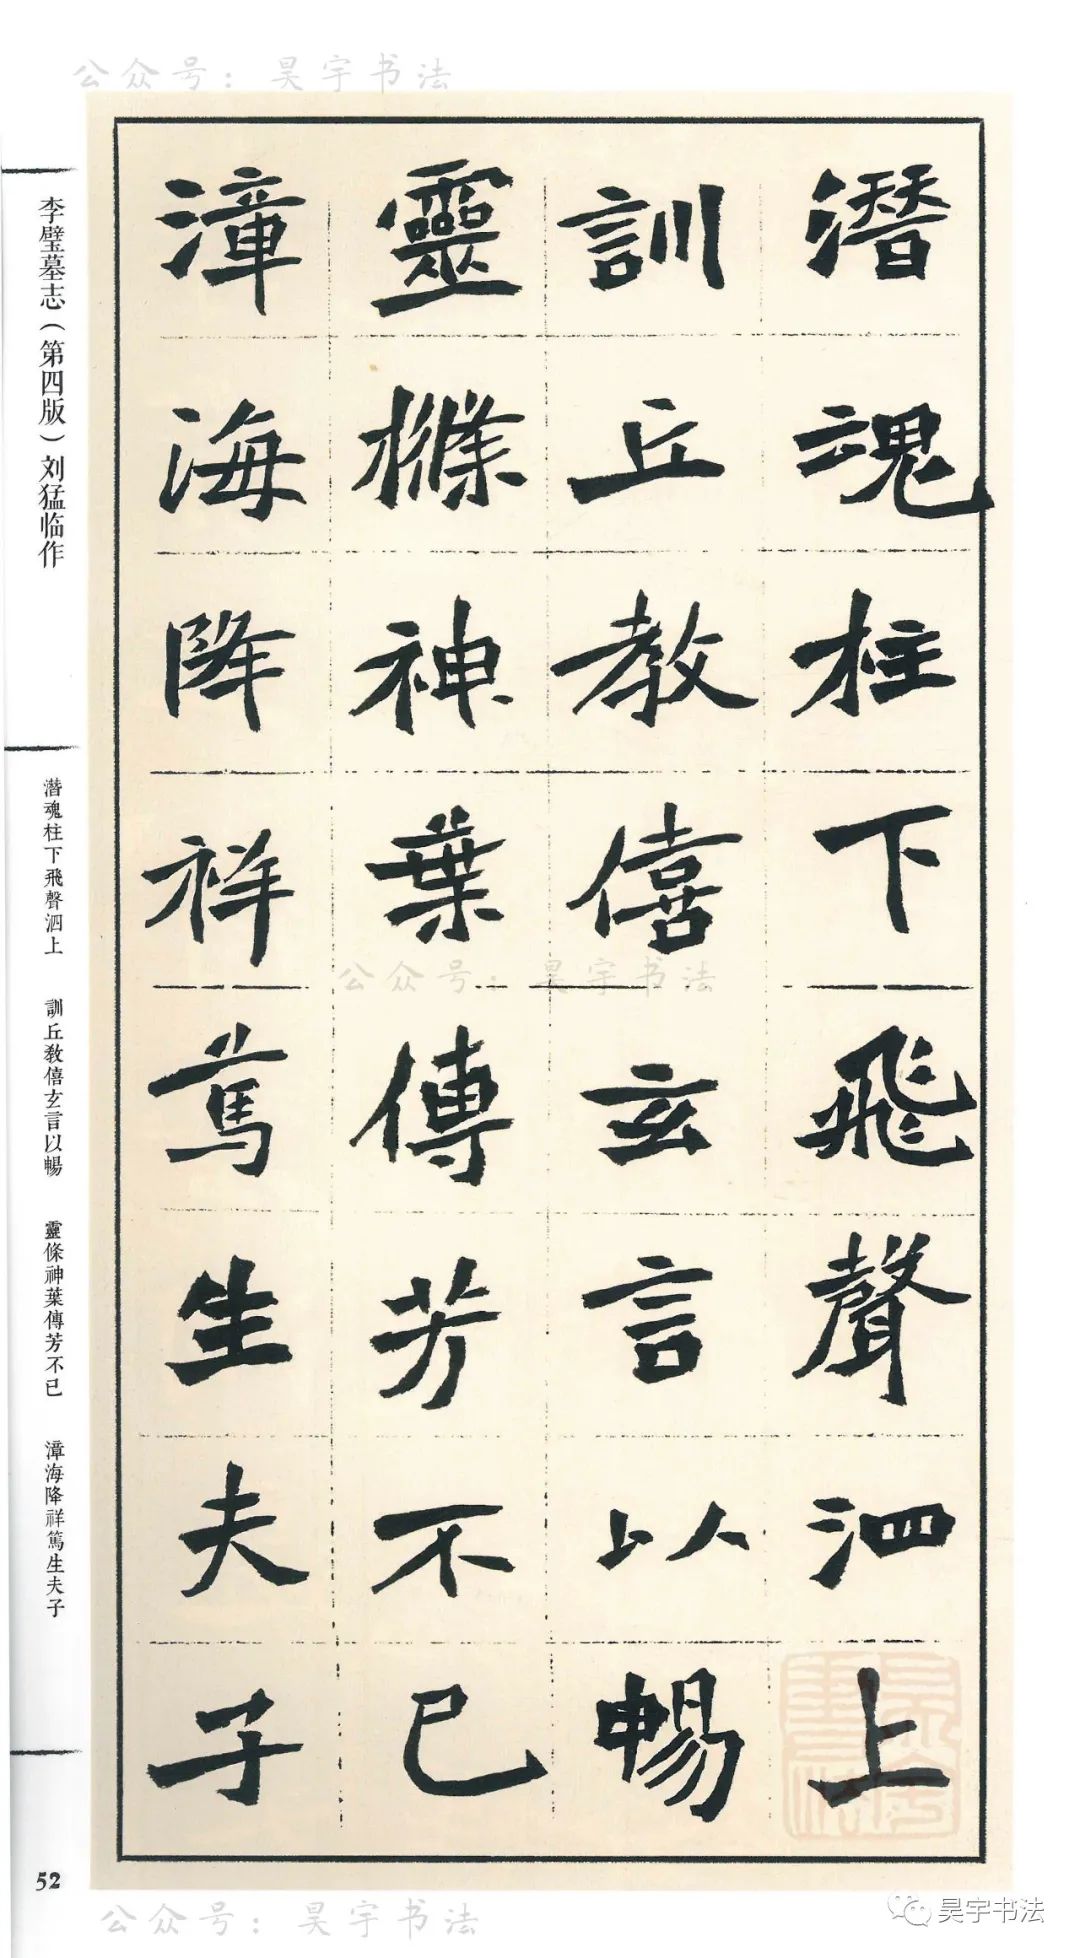 公众号：昊宇书法
潛魂柱下飛聲泗上
訓丘教僖玄言以暢
靈條神葉傳芳不已
漳海降祥篤生夫子
李璧墓志（第四版）刘猛临作
潛魂柱下飛聲泗上 訓丘教僖玄言以暢 靈條神葉傳芳不已 漳海降祥篤生夫子
52
公众号：昊宇书法
公众号：昊宇书法
昊宇书法